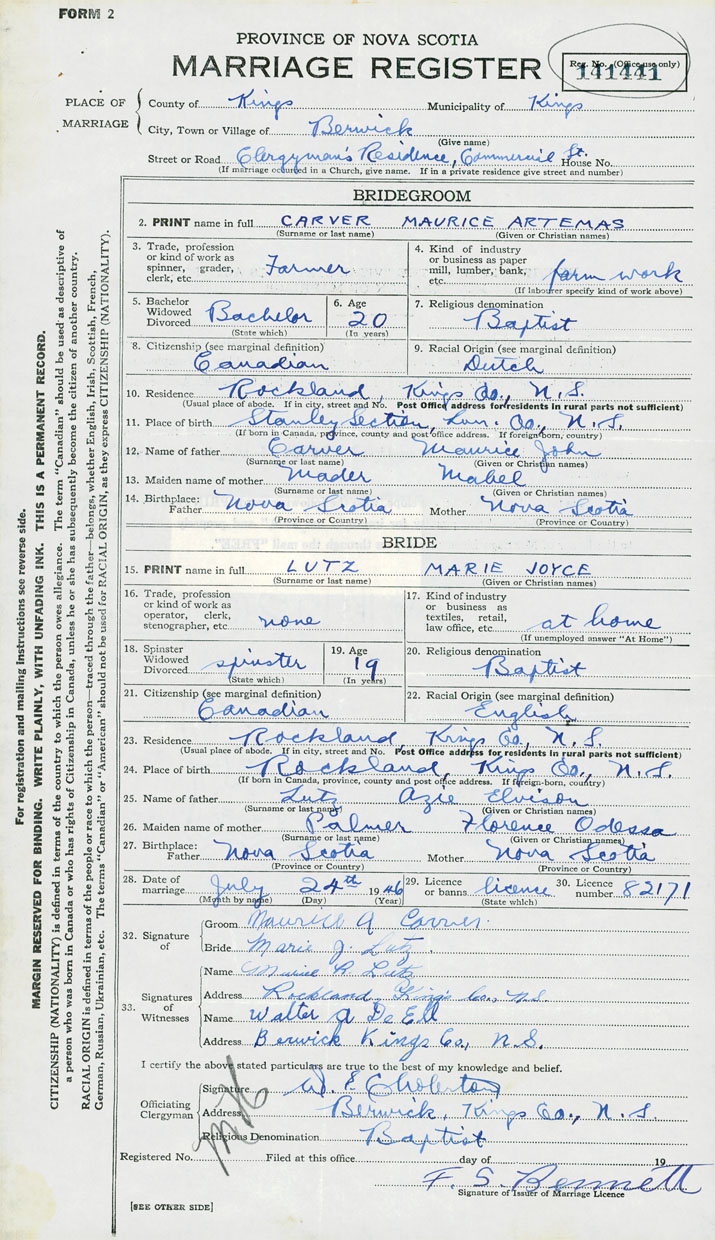 FORM 2
PROVINCE OF NOVA SCOTIA
MARRIAGE REGISTER
Reg. No. (Office use only)
141441
PLACE OF MARRIAGE
County of Kings Municipality of Kings
City, Town or Village of Berwick
(Give name)
Street or Road Clergyman's Residence, Commercial St. House No.
(If marriage occurred in a Church, give name. If in a private residence give street and number)
BRIDEGROOM
2. PRINT name in full CARVER MAURICE ARTEMAS
(Surname or last name) (Given or Christian names)
3. Trade, profession or kind of work as spinner, grader, clerk, etc. Farmer
4. Kind of industry or business as paper mill, lumber, bank, etc. farm work
(If labourer specify kind of work above)
5. Bachelor Widowed Divorced Bachelor
(State which)
6. Age 20
(In years)
7. Religious denomination
Baptist
8. Citizenship (see marginal definition)
Canadian
9. Racial Origin (see marginal definition)
Dutch
10. Residence Rockland, Kings Co., N.S.
(Usual place of abode. If in city, street and No. Post Office address for residents in rural parts not sufficient)
11. Place of birth Stanley Section, Lun. Co., N.S.
(If born in Canada, province, county and post office address. If foreign born, country)
12. Name of father Carver Maurice John
(Surname or last name) (Given or Christian names)
13. Maiden name of mother Mader Mabel
(Surname or last name) (Given or Christian names)
14. Birthplace: Father Nova Scotia Mother Nova Scotia
(Province or Country) (Province or Country)
BRIDE
15. PRINT name in full LUTZ MARIE JOYCE
(Surname or last name) (Given or Christian names)
16. Trade, profession or kind of work as operator, clerk, stenographer, etc. none
17. Kind of industry or business as textiles, retail, law office, etc. at home
(If unemployed answer "At Home")
18. Spinster Widowed Divorced spinster
(State which)
19. Age 19
(In years)
20. Religious denomination
Baptist
21. Citizenship (see marginal definition)
Canadian
22. Racial Origin (see marginal definition)
English
23. Residence Rockland, Kings Co., N.S.
(Usual place of abode. If in city, street and No. Post Office address for residents in rural parts not sufficient)
24. Place of birth Rockland, Kings Co., N.S.
(If born in Canada, province, county and post office address. If foreign-born, country)
25. Name of father Lutz Azie Elvison
(Surname or last name) (Given or Christian names)
26. Maiden name of mother Palmer Florence Odessa
(Surname or last name) (Given or Christian names)
27. Birthplace: Father Nova Scotia Mother Nova Scotia
(Province or Country) (Province or Country)
28. Date of marriage July 24th 1946
(Month by name) (Day) (Year)
29. Licence or banns license
(State which)
30. Licence number 82171
32. Signature of
Groom Maurice A Carver
Bride Marie J. Lutz
33. Signatures of Witnesses
Name Muriel R Lutz
Address Rockland, Kings Co., N.S.
Name Walter A De Ell
Address Berwick Kings Co., N.S.
I certify the above stated particulars are true to the best of my knowledge and belief.
Officiating Clergyman
Signature W. E. Cholerton
Address Berwick, Kings Co., N.S.
Religious Denomination Baptist
Registered No. Filed at this office day of 19
F. S. Bennett
Signature of Issuer of Marriage Licence
[SEE OTHER SIDE]
For registration and mailing instructions see reverse side.
MARGIN RESERVED FOR BINDING. WRITE PLAINLY, WITH UNFADING INK. THIS IS A PERMANENT RECORD.
CITIZENSHIP (NATIONALITY) is defined in terms of the country to which the person owes allegiance. The term "Canadian" should be used as descriptive of
a person who was born in Canada or who has rights of Citizenship in Canada, unless he or she has subsequently become the citizen of another country.
RACIAL ORIGIN is defined in terms of the people or race to which the person—traced through the father—belongs, whether English, Irish, Scottish, French,
German, Russian, Ukrainian, etc. The terms "Canadian" or "American" should not be used for RACIAL ORIGIN, as they express CITIZENSHIP (NATIONALITY).